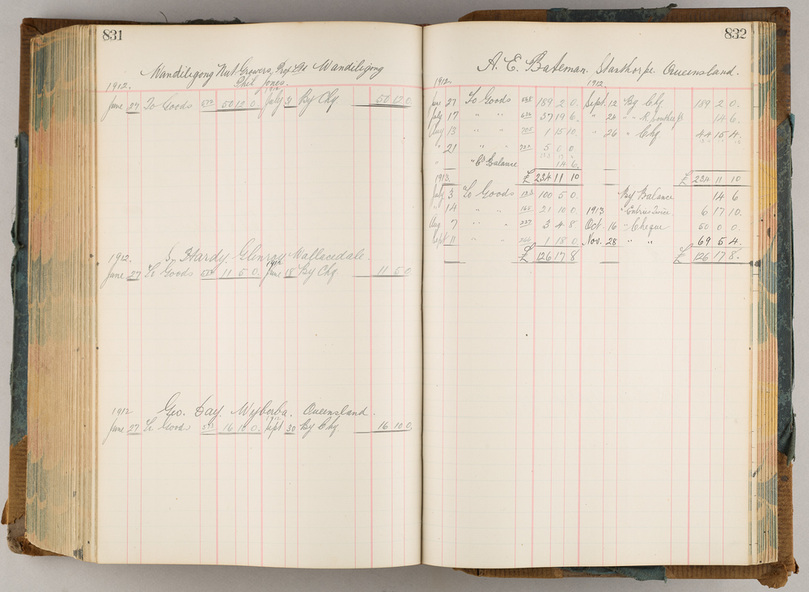 831
Wandiligong Nut Growers, Wandiligong
1912. Phil Jones.
June 27 To Goods 50 12 0 July 9 By Chq 50 12 0
1912. Hardy. Glenroy Wallacedale.
June 27 To Goods 11 5 0 June 18 By Chq 11 5 0
1912 Geo. Day. Wyberba. Queensland.
June 27 To Goods 16 10 0 Sept. 30 By Chq 16 10 0
832
A. E. Bateman. Stanthorpe. Queensland.
1912. 1912.
27 To Goods 189 2 0 Sept. 12 By Chq 189 2 0
July 17 " " 37 19 6 " 26 " " 14 6
Aug 13 " " 1 15 10 " 26 " Chq 44 15 4
" 21 " " 5 0 0
" Cr Balance 14 6
1913. £ 234 11 10 £ 234 11 10
July 3 To Goods 100 5 0 By Balance 14 6
" 14 " " 21 10 0 1913 " 6 17 10
Aug 7 " " 3 4 8 Oct. 16 " Cheque 50 0 0
Sept 11 " " 1 18 0 Nov. 28 " " 69 5 4
£ 126 17 8 £ 126 17 8